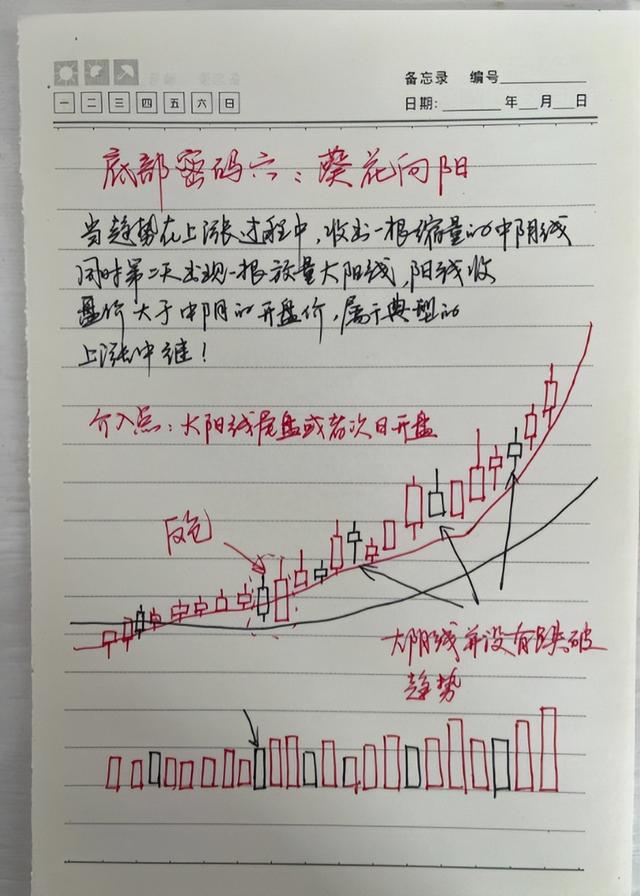 备忘录 编号
一 二 三 四 五 六 日
日期: 年 月 日
底部密码六：葵花向阳
当趋势在上涨过程中，收出一根缩量的中阴线
同时第二天出现一根放量大阳线，阳线收
盘价大于中阴的开盘价，属于典型的
上涨中继！
介入点：大阳线尾盘或者次日开盘
反包
大阴线并没有跌破
趋势